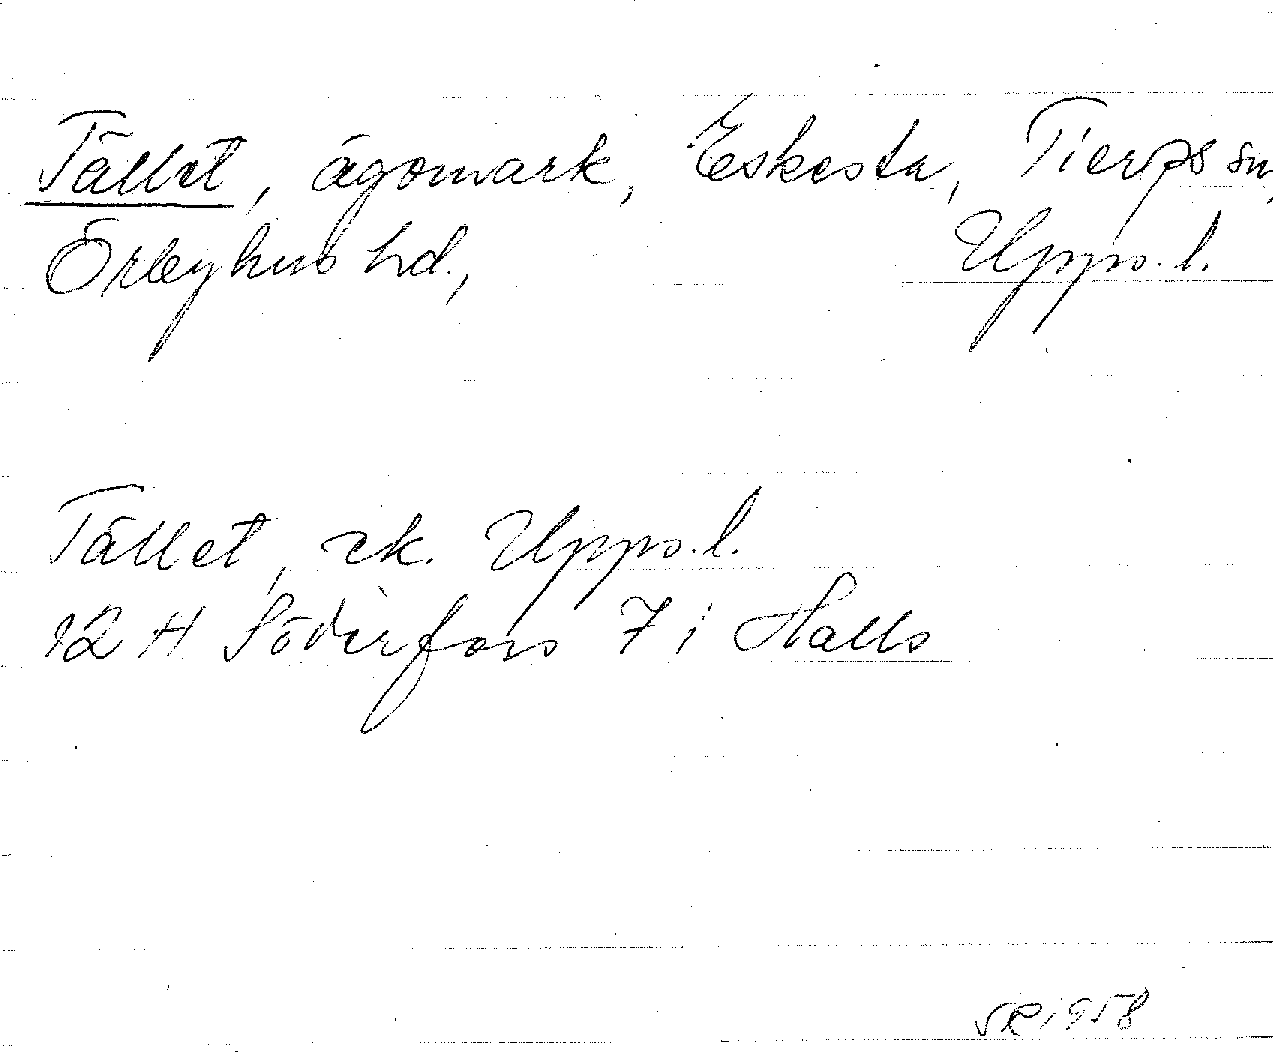 Tället, ägomark, Eskesta, Tierps sn,
Örbyhus hd., Upps. l.
Tället, ek. Upps. l.
12 H Söderfors 7 i Halls
SR 1958